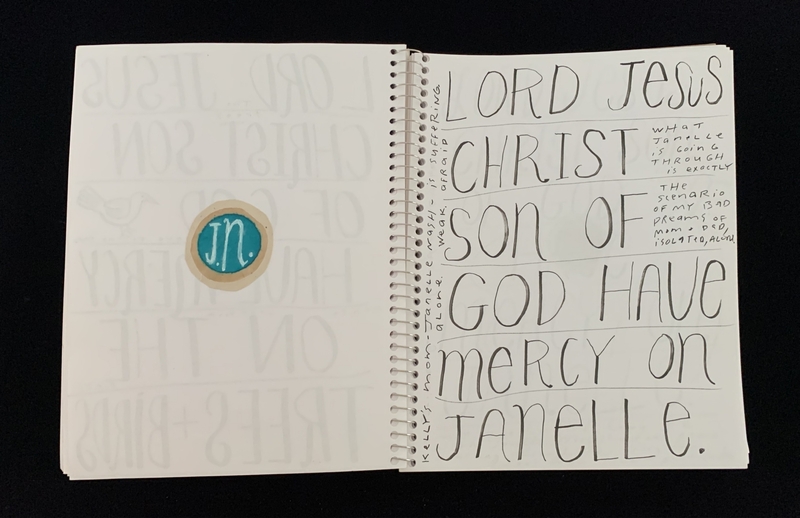 J.N.
KELLY'S MOM - JANELLE NASH - IS SUFFERING
ALONE. WEAK. AFRAID
LORD JESUS
CHRIST
WHAT
JANELLE
IS GOING
THROUGH
IS EXACTLY
THE
SCENARIO
OF MY BAD
DREAMS OF
MOM + DAD,
ISOLATED, ALONE.
SON OF
GOD HAVE
MERCY ON
JANELLE.